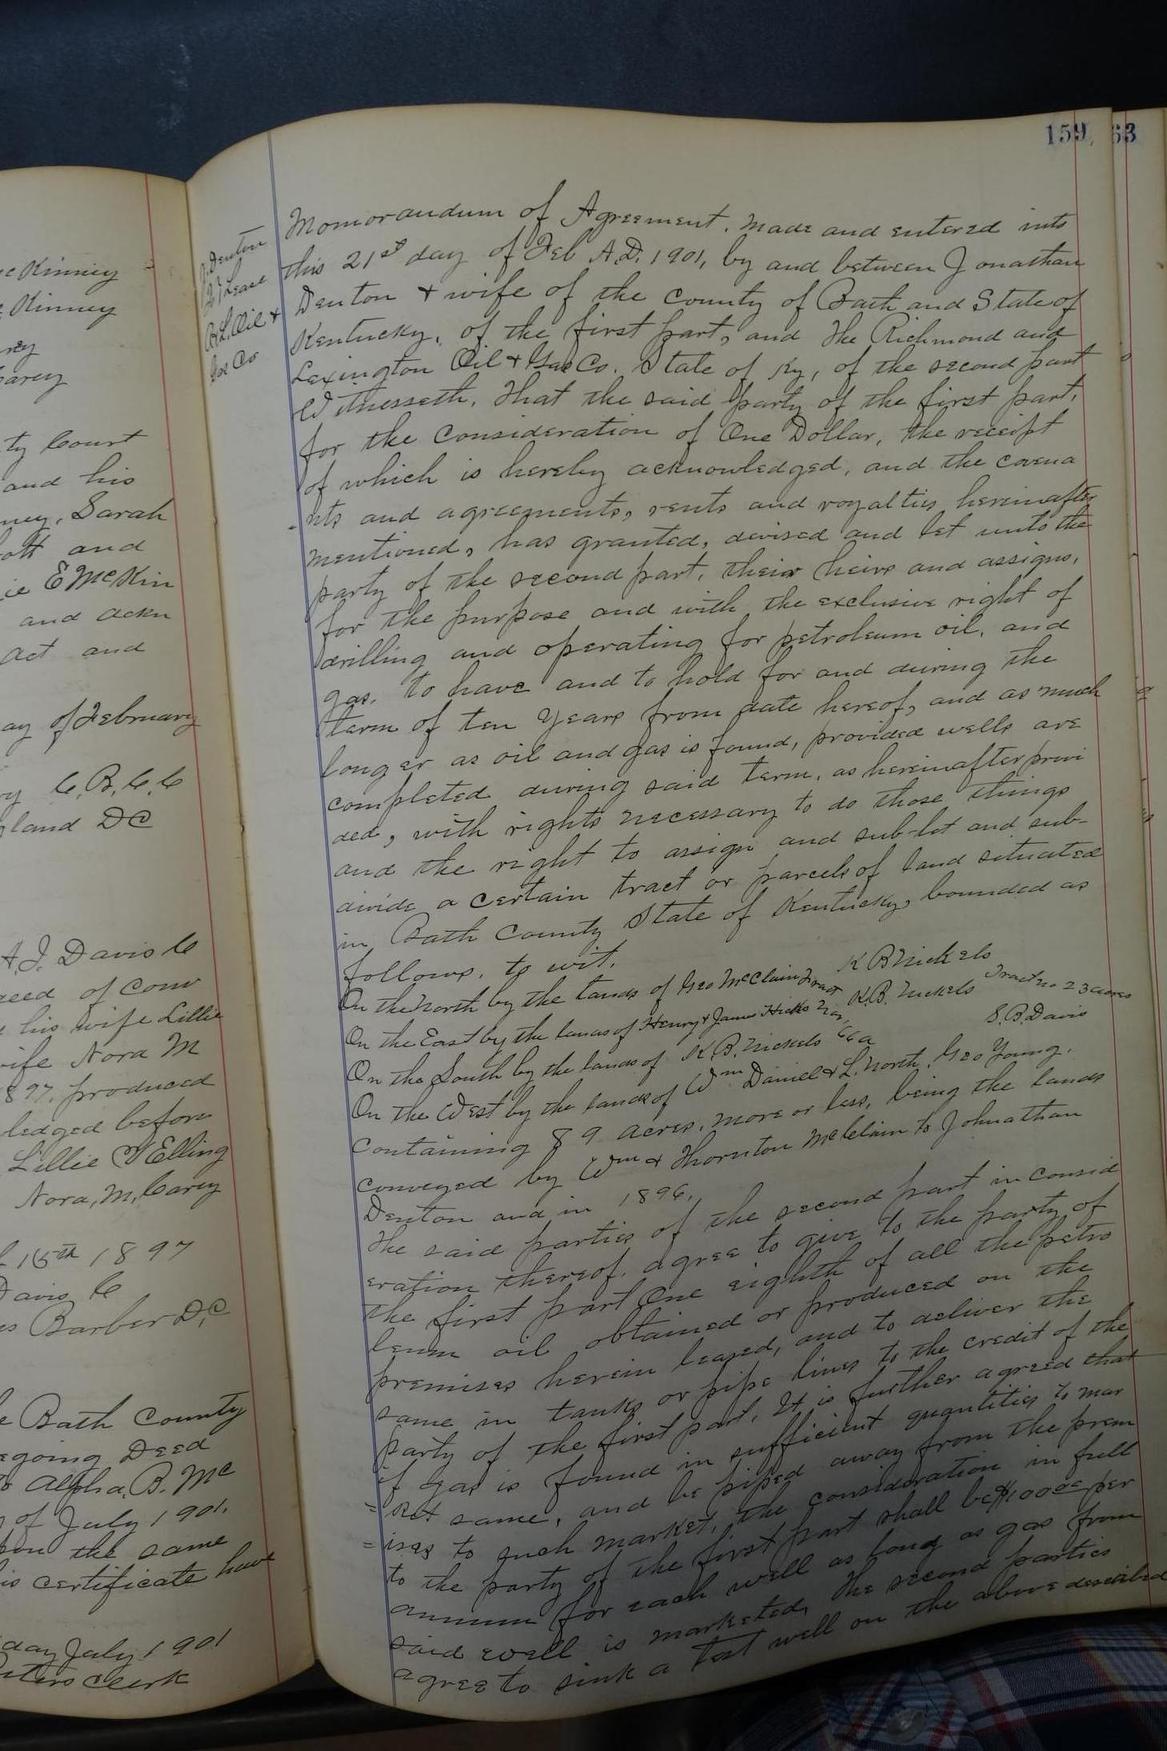 cKinney
Kinney
rey
arey
ty Court
and his
ney, Sarah
ott and
ie E McKin
and ackn
act and
ay of February
y C.B.C.C
gland DC
A.J. Davis C
reed of Conv
his wife Lillie
wife Nora M
897, produced
ledged before
Lillie C Elling
Nora, M, Carey
16th 1897
Davis C
es Barber D,C
e Bath County
egoing Deed
Alpha. B. Mc
y of July 1901,
pon the same
is certificate have
day July, 1901
ters Clerk
159, 63
J. Denton
Lease
R.L. Oil &
Gas Co
Momorandum of Agreement. Made and entered into
this 21st day of Feb A.D. 1901, by and between Jonathan
Denton & wife of the County of Bath and State of
Kentucky, of the first part, and The Richmond and
Lexington Oil & Gas Co. State of Ky, of the second part
Witnesseth, That the said party of the first part,
for the consideration of One Dollar, the receipt
of which is hereby acknowledged, and the covena
-nts and agreements, rents and royalties hereinafter
mentioned, has granted, devised and let unto the
party of the second part, their heirs and assigns,
for the purpose and with the exclusive right of
drilling and operating for petroleum oil, and
gas. to have and to hold for and during the
term of ten years from date hereof, and as much
longer as oil and gas is found, provided wells are
completed during said term, as hereinafter provi
ded, with rights necessary to do those things
and the right to assign and sub-let and sub-
divide a certain tract or parcels of land situated
in Bath County State of Kentucky, bounded as
follows. to wit.
On the North by the lands of Geo McClain Tract K B Nickels
On the East by the lands of Henry & James Hicks K.B. Nickels Tract no 2 3 acres
On the South by the lands of K.B. Nickels S.B. Davis
On the West by the lands of Wm Daniel & L. North, Geo Young.
Containing 89 acres, more or less, being the lands
conveyed by Wm & Thornton McClain to Johnathan
Denton and in 1896,
The said parties of the second part in consid
eration thereof. agree to give to the party of
the first part One eighth of all the petro
leum oil obtained or produced on the
premises herein leased, and to deliver the
same in tanks or pipe lines to the credit of the
party of the first part, It is further agreed that
if gas is found in sufficient quantities to mar
=ket same, and be piped away from the prem
=ises to such market, the consideration in full
to the party of the first part shall be $100.00 per
annum for each well as long as gas from
said well is marketed, The second parties
agree to sink a test well on the above described